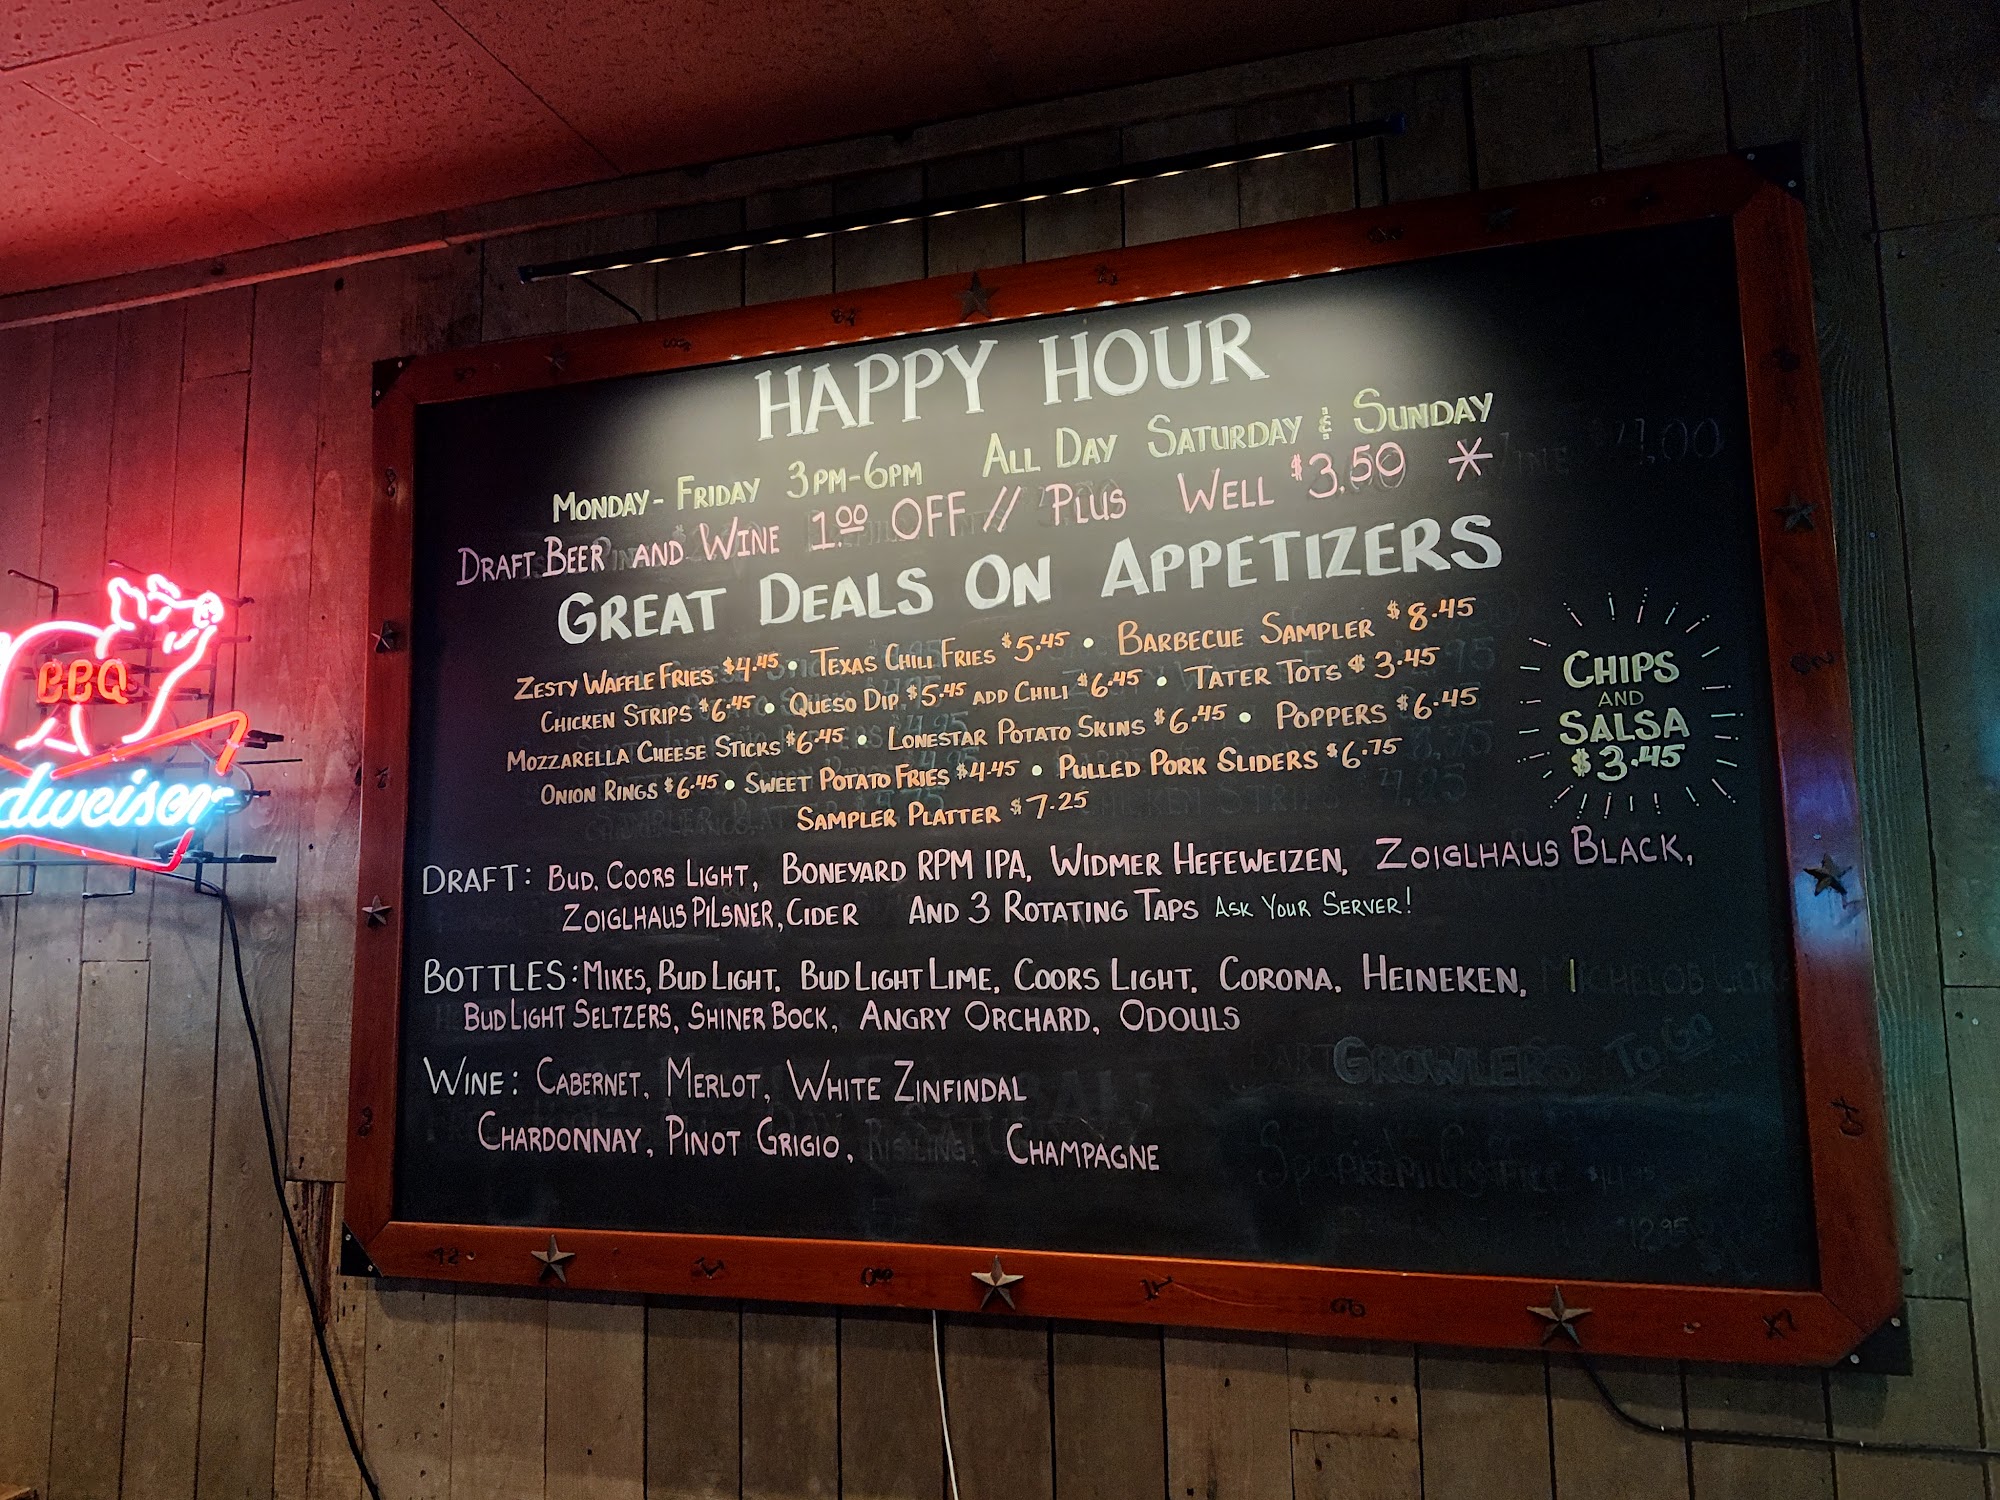 HAPPY HOUR
MONDAY - FRIDAY 3PM-6PM ALL DAY SATURDAY & SUNDAY
DRAFT BEER AND WINE 1.00 OFF // PLUS WELL $3.50 *
GREAT DEALS ON APPETIZERS
ZESTY WAFFLE FRIES $4.45 • TEXAS CHILI FRIES $5.45 • BARBECUE SAMPLER $8.45
CHICKEN STRIPS $6.45 • QUESO DIP $5.45 ADD CHILI $6.45 • TATER TOTS $3.45
MOZZARELLA CHEESE STICKS $6.45 • LONESTAR POTATO SKINS $6.45 • POPPERS $6.45
ONION RINGS $6.45 • SWEET POTATO FRIES $4.45 • PULLED PORK SLIDERS $6.75
SAMPLER PLATTER $7.25
CHIPS
AND
SALSA
$3.45
DRAFT: BUD, COORS LIGHT, BONEYARD RPM IPA, WIDMER HEFEWEIZEN, ZOIGLHAUS BLACK,
ZOIGLHAUS PILSNER, CIDER AND 3 ROTATING TAPS ASK YOUR SERVER!
BOTTLES: MIKES, BUD LIGHT, BUD LIGHT LIME, COORS LIGHT, CORONA, HEINEKEN, MICHELOB ULTRA
BUD LIGHT SELTZERS, SHINER BOCK, ANGRY ORCHARD, ODOULS
GROWLERS TO GO
WINE: CABERNET, MERLOT, WHITE ZINFINDAL
CHARDONNAY, PINOT GRIGIO, RISLING! CHAMPAGNE
$12.95
BBQ
dweiser